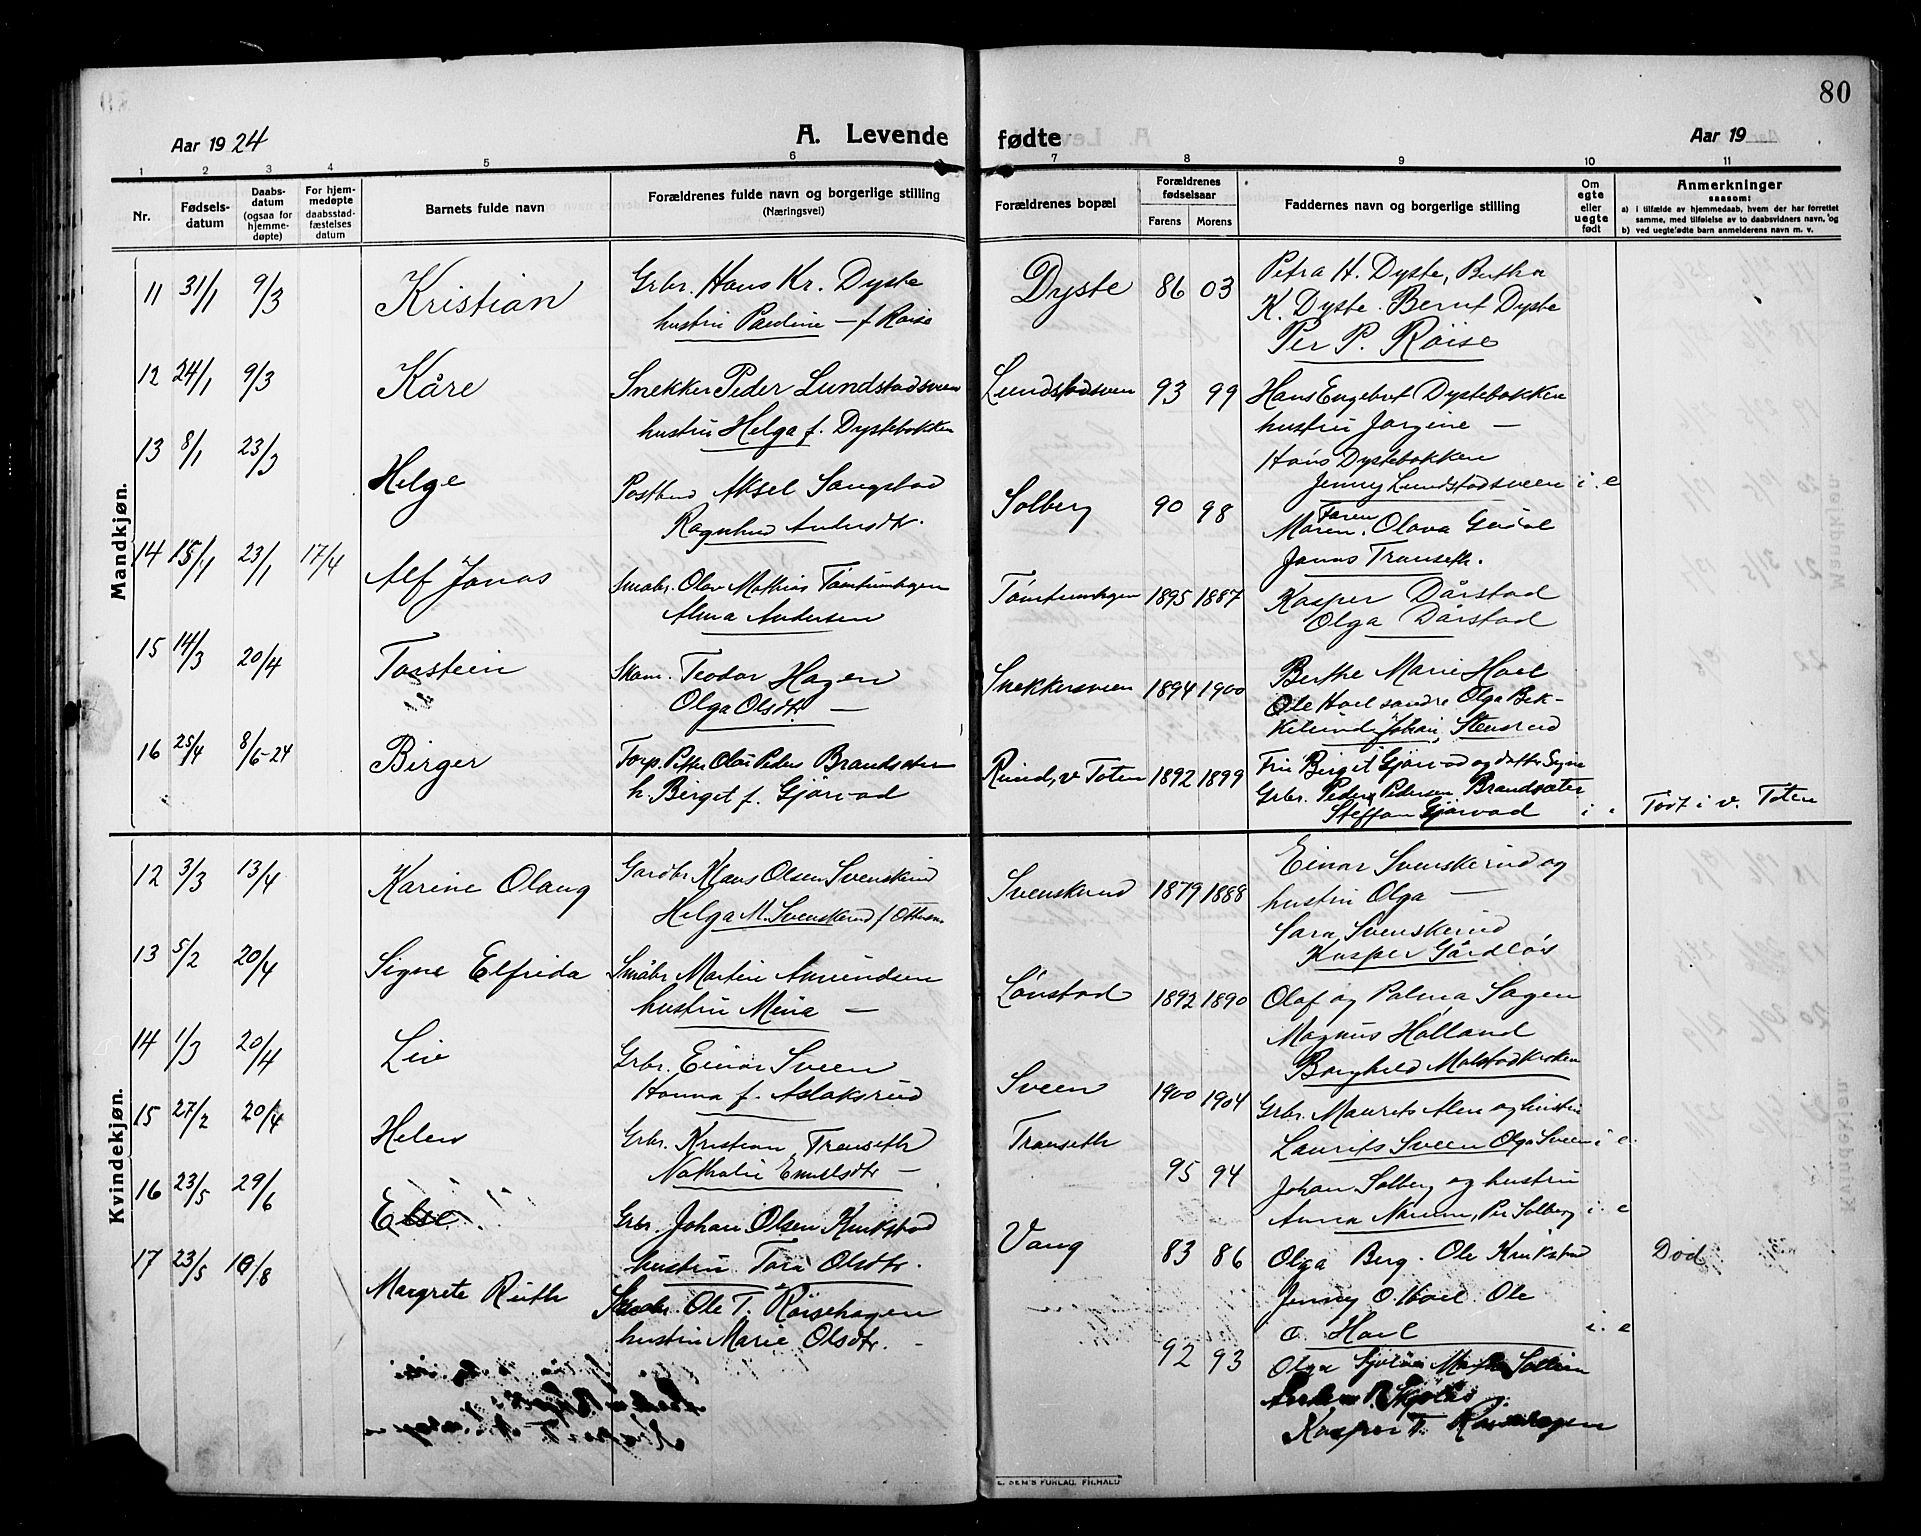 80
Aar 1924
A. Levende
fødte
Aar 19
1 2 3 4 5 6 7 8 9 10 11
Nr.
Fødsels-
datum
Daabs-
datum
(ogsaa for
hjemme-
døpte)
For hjem-
medøpte
daabsstad-
fæstelses
datum
Barnets fulde navn
Forældrenes fulde navn og borgerlige stilling
(Næringsvei)
Forældrenes bopæl
Forældrenes
fødselsaar
Farens Morens
Faddernes navn og borgerlige stilling
Om
egte
eller
uegte
født
Anmerkninger
saasom:
a) i tilfælde av hjemmedaab, hvem der har forrettet
samme, med tilføielse av to daabsvidners navn, og
b) ved uegtefødte barn anmelderens navn m. v.
Mandkjøn.
11 31/1 9/3 Kristian
Grbr. Hans Kr. Dyste
hustru Pauline — f. Røise
Dyste 86 03
Petra H. Dyste, Bertha
K. Dyste. Bernt Dyste
Per P. Røise
12 24/1 9/3 Kåre
Snekker Peder Lundstadsveen
hustru Helga f. Dystebakken
Lundstadsveen 93 99
Hans Engebret Dystebakken
hustru Jørgine —
Hans Dystebakken
Jenny Lundstadsveen i. e
13 8/1 23/3 Helge
Postbud Aksel Sangstad
Ragnhild Andersdtr.
Solberg 90 98
Faren
Maren, Olava
Jonas Transeth.
14 15/1 23/1 17/4 Alf Jonas
Småbr. Olav Mathias Tømtumhagen
Alma Andersen
Tømtumhagen 1895 1887
Kasper Dårstad
Olga Dårstad
15 14/3 20/4 Torstein
Skom. Teodor Hagen
Olga Olsdtr. —
Snekkersveen 1894 1900
Berthe Marie Hoel
Ole Hoel søndre Olga Bek-
kelund Johan Stensrud
16 25/4 8/6-24 Birger
Forp. Peder Brandsæter
h. Birgit f. Gjørvad
Rund, v. Toten 1892 1899
Fru Birgit Gjørvad og datter Signe
Grbr. Peder Pedersen Brandsæter
Steffan Gjørvad i e Født i v. Toten
Kvindekjøn.
12 3/3 13/4 Karine Olaug
Gardbr Klaus Olsen Svenskerud
Helga M. Svenskerud f. Ottesen
Svenskerud 1879 1888
Einar Svenskerud og
hustru Olga —
Sara Svenskerud
Kasper Gårdløs
13 5/2 20/4 Signe Elfrida
Småbr Martin Amundsen
hustru Mina —
Lønstad 1892 1890
Olaf og Palma Sagen
Magnus Hølland
Borghild Mælstadkroken
14 1/3 20/4 Liv
Grbr. Einar Sveen
Hanna f. Aslaksrud
Sveen 1900 1904
Grbr. Maurits Alm og hustru
Laurits Sveen Olga Sveen i e
15 27/2 20/4 Helen
Grbr. Kristian Transeth
Nathalie Emilsdtr —
Transeth 95 94
Johan Solberg og hustru
Anna Narum, Per Solberg i. e
16 23/5 29/6 Else
Grbr. Johan Olsen Krukstad
hustru Tora Olsdtr.
Vang 83 86
Olga Berg. Ole Krikstad
Jenny O. Hoel. Ole
O. Hoel i. e
Død
17 23/5 10/8 Margrete Ruth
Småbr. Ole T. Røisehagen
hustru Marie Olsdtr. —
92 93
Olga Sjølie
Kasper T. Røisehagen
E. SEM'S FORLAG, FR.HALD